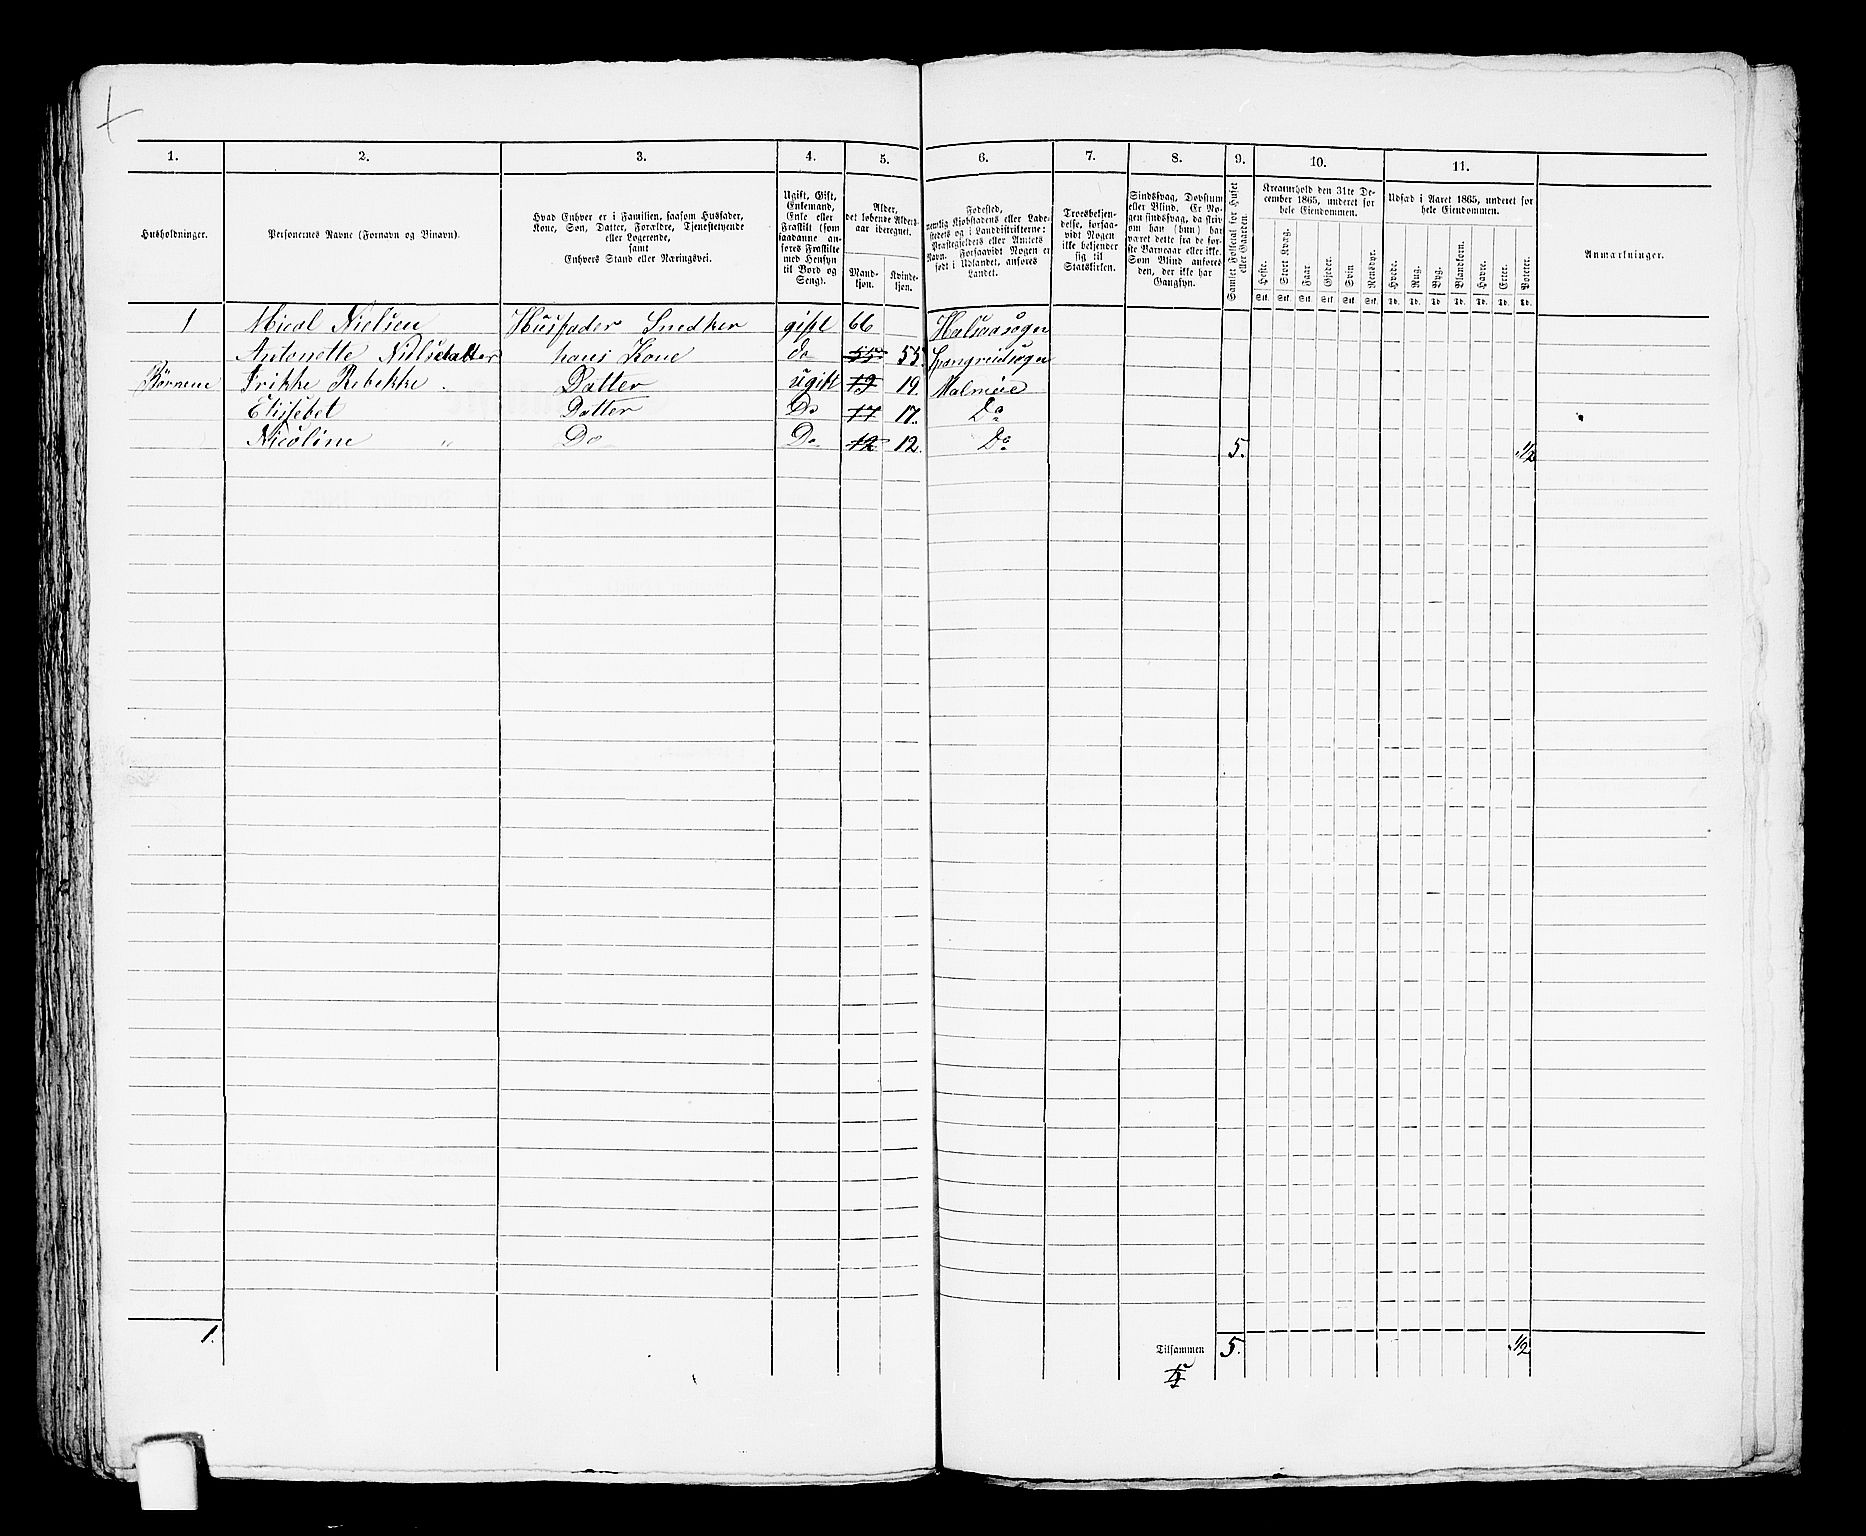 1. 2. 3. 4. 5. 6. 7. 8. 9. 10. 11.
Husholdninger.
Personernes Navne (Fornavn og Binavn).
Hvad Enhver er i Familien, saasom Husfader,
Kone, Søn, Datter, Forældre, Tjenestetyende
eller Logerende,
samt
Enhvers Stand eller Næringsvei.
Ugift, Gift,
Enkemand,
Enke eller
Fraskilt (som
saadanne an-
føres Fraskilte
med Hensyn
til Bord og
Seng).
Alder,
det løbende Alders-
aar iberegnet.
Mand-
kjøn.
Kvinde-
kjøn.
Fødested,
nemlig Kjøbstadens eller Lade-
stedets og i Landdistrikterne:
Præstegjeldets eller Amtets
Navn. Forsaavidt Nogen er
født i Udlandet, anføres
Landet.
Troesbekjen-
delse, forsaa-
vidt Nogen
ikke bekjender
sig til
Statskirken.
Sindssvag, Døvstum
eller Blind. Er No-
gen sindssvag, da skriv
om han (hun) har
været dette fra de før-
ste Barneaar eller ikke.
Som Blind anføres
den, der ikke har
Gangsyn.
Samlet Folketal for Huset
eller Gaarden.
Kreaturhold den 31te De-
cember 1865, underet for
hele Eiendommen.
Heste. Stort Kvæg. Faar. Gjeder. Svin. Rensdyr.
Stk. Stk. Stk. Stk. Stk. Stk.
Udsæd i Aaret 1865, underet for
hele Eiendommen.
Hvede. Rug. Byg. Blandkorn. Havre. Erter. Poteter.
Td. Td. Td. Td. Td. Td. Td.
Anmærkninger.
1 Micol Nielsen Husfader Snedker gift 66 Halsaasogn
Antonette Nielsdatter hans Kone do 55 55. Spangreidsogn
Børnene Frikke Rebekke . Datter ugift 19 19. Malmøie
Elisebet Datter Do 17 17. Do
Nicoline " Do Do 12 12. Do 5. 1/2
1. Tilsammen 5. 1/2